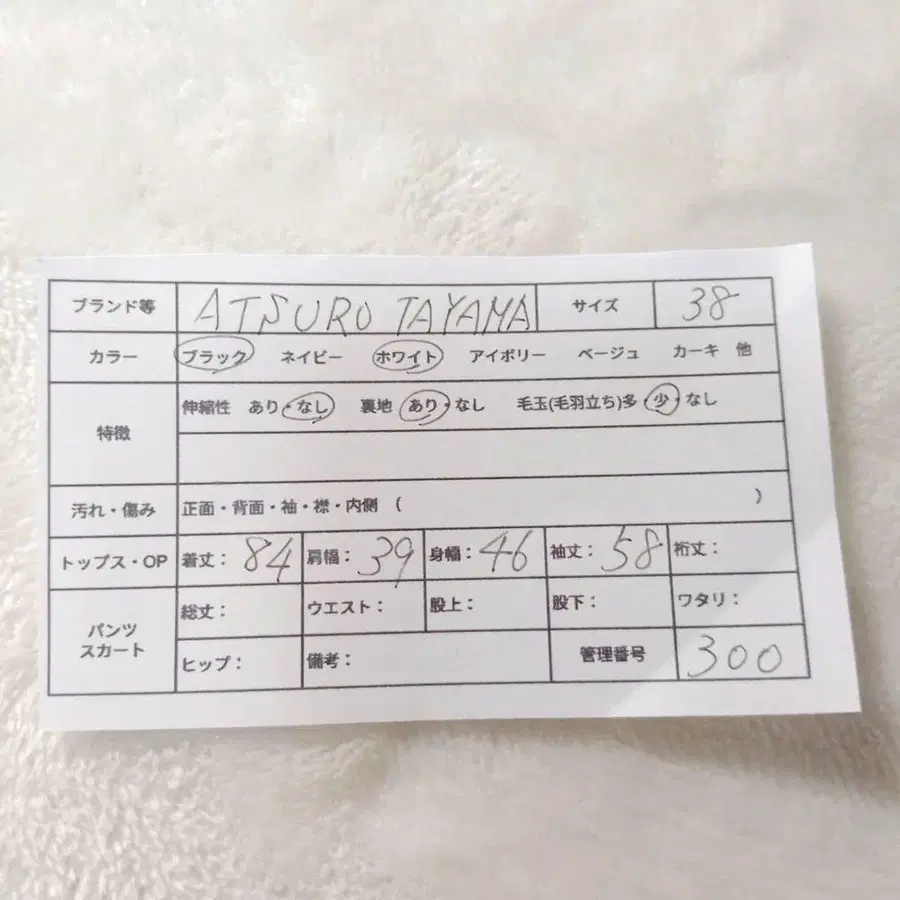 ブランド等 ATSURO TAYAMA サイズ 38
カラー ブラック ネイビー ホワイト アイボリー ベージュ カーキ 他
特徴 伸縮性 あり・なし 裏地 あり・なし 毛玉(毛羽立ち)多・少・なし
汚れ・傷み 正面・背面・袖・襟・内側 ( )
トップス・OP 着丈: 84 肩幅: 39 身幅: 46 袖丈: 58 裄丈:
パンツ スカート 総丈: ウエスト: 股上: 股下: ワタリ:
ヒップ: 備考: 管理番号 300